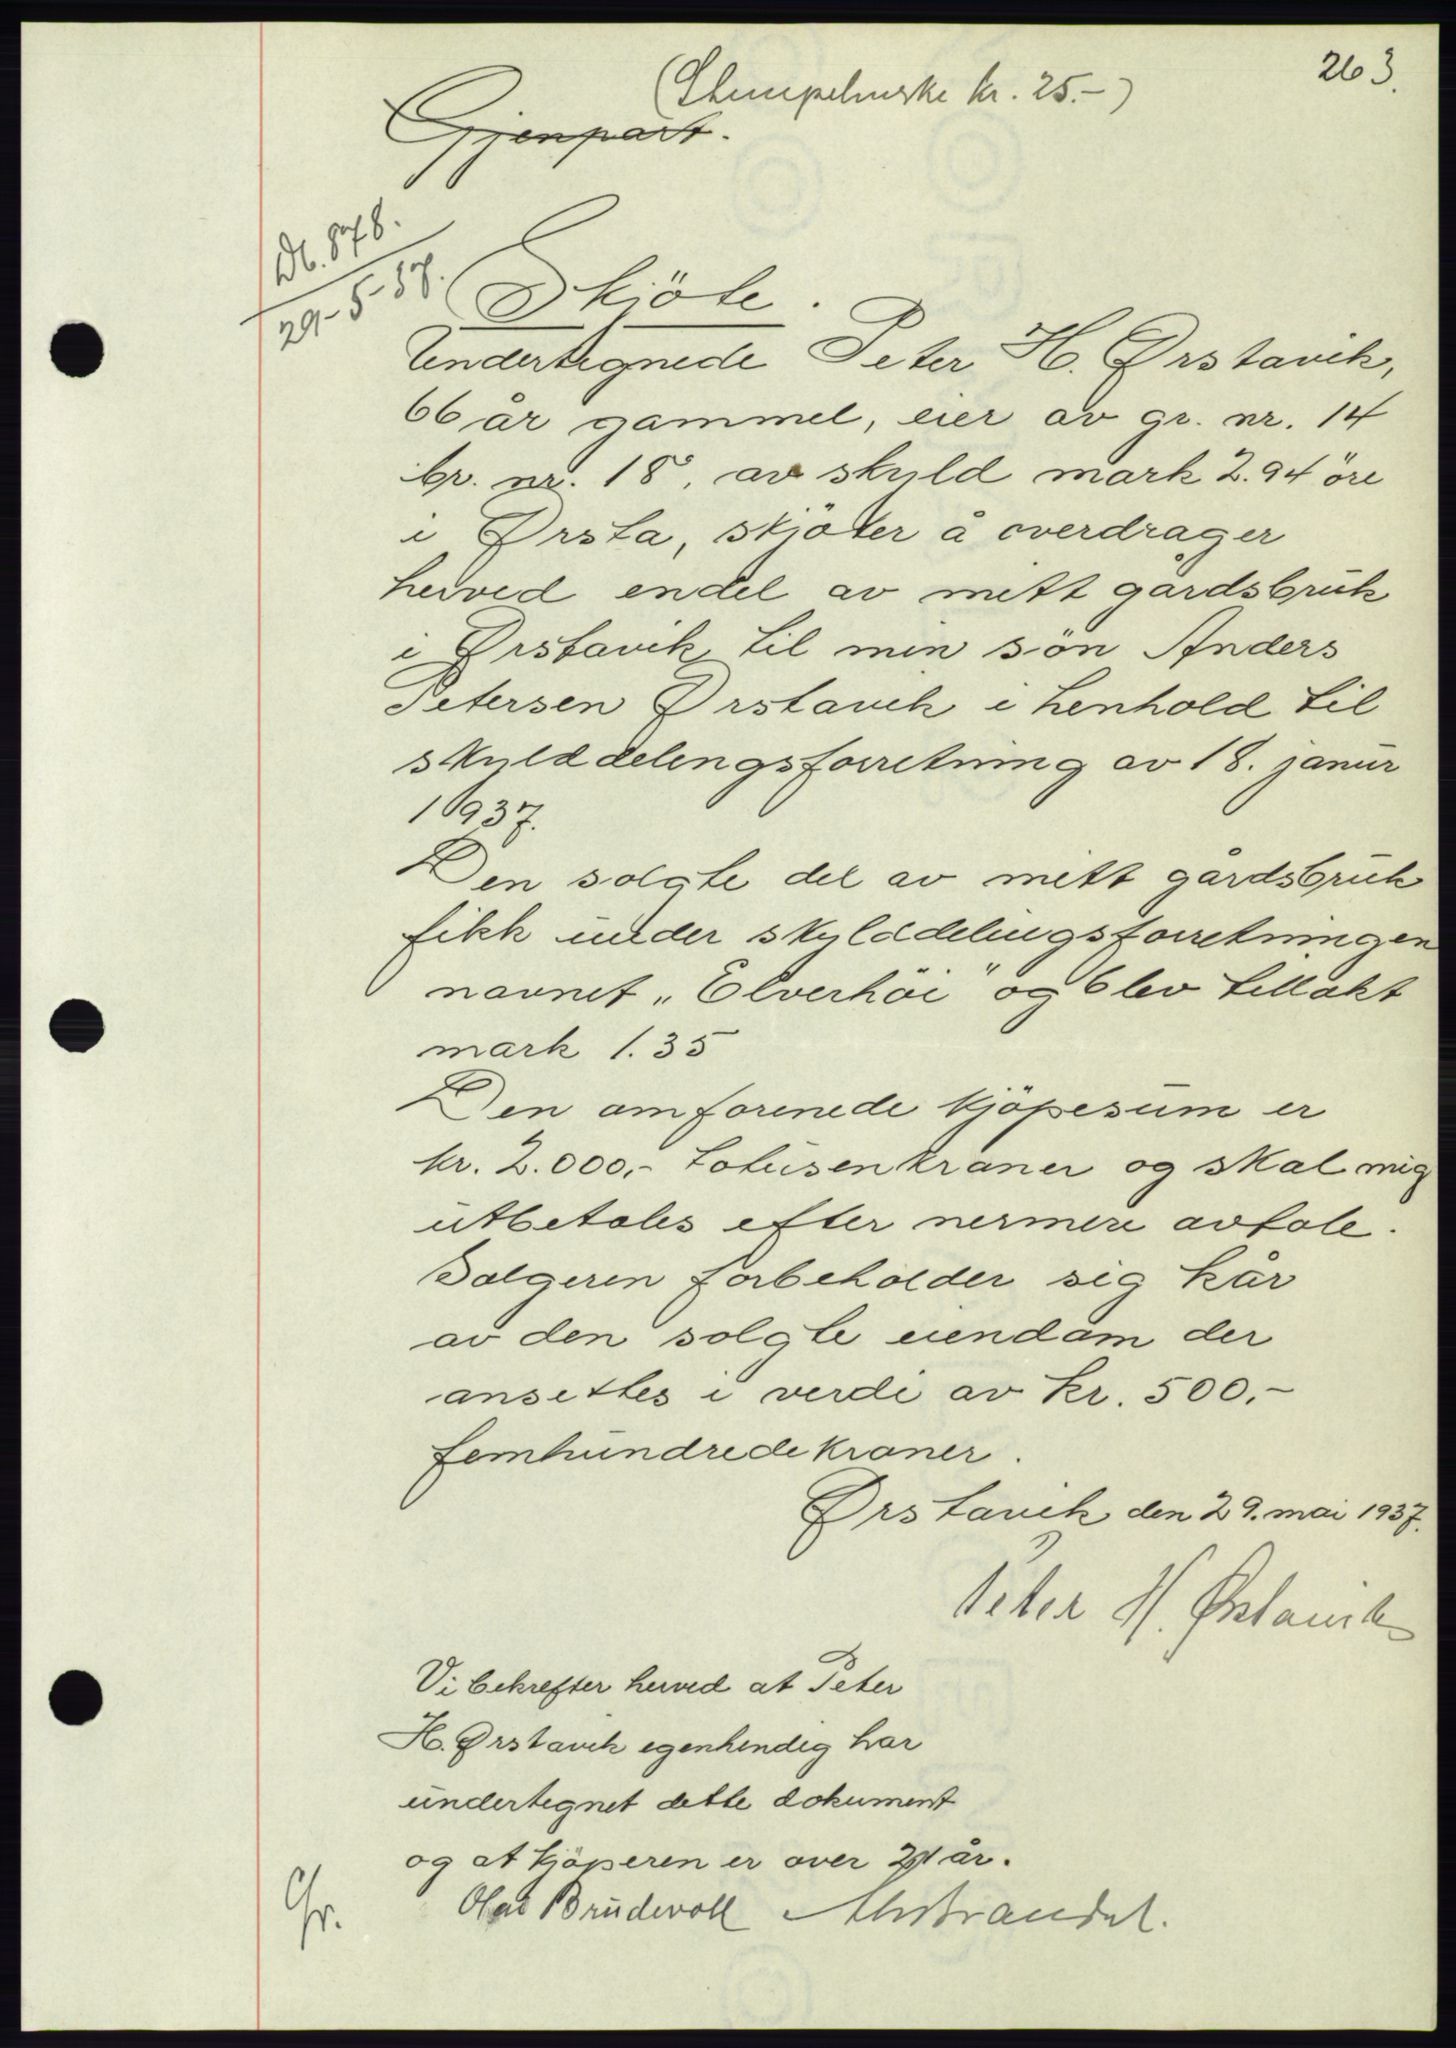 263.
(Stempelmerke kr. 25.-)
Gjenpart.
Db. 878.
29-5-37.
Skjöte.
Undertegnede Peter H. Ørstavik,
66 år gammel, eier av gr. nr. 14
br. nr. 18, av skyld mark 2.94 öre
i Ørsta, skjöter å overdrager
herved endel av mitt gårdsbruk
i Ørstavik til min sön Anders
Petersen Ørstavik i henhold til
skylddelingsforretning av 18. janur
1937.
Den solgte del av mitt gårdsbruk
fikk under skylddelingsforretningen
navnet „Elverhöi" og blev tillakt
mark 1.35
Den omforenede kjöpesum er
kr. 2.000,- totusenkroner og skal mig
utbetales efter nermere avtale.
Selgeren forbeholder sig kår
av den solgte eiendom der
ansettes i verdi av kr. 500,-
femhundredekroner.
Ørstavik den 29. mai 1937.
Peter H. Ørstavik
Vi bekrefter herved at Peter
H. Ørstavik egenhendig har
undertegnet dette dokument
og at kjöperen er over 21 år.
Olav Brudevoll